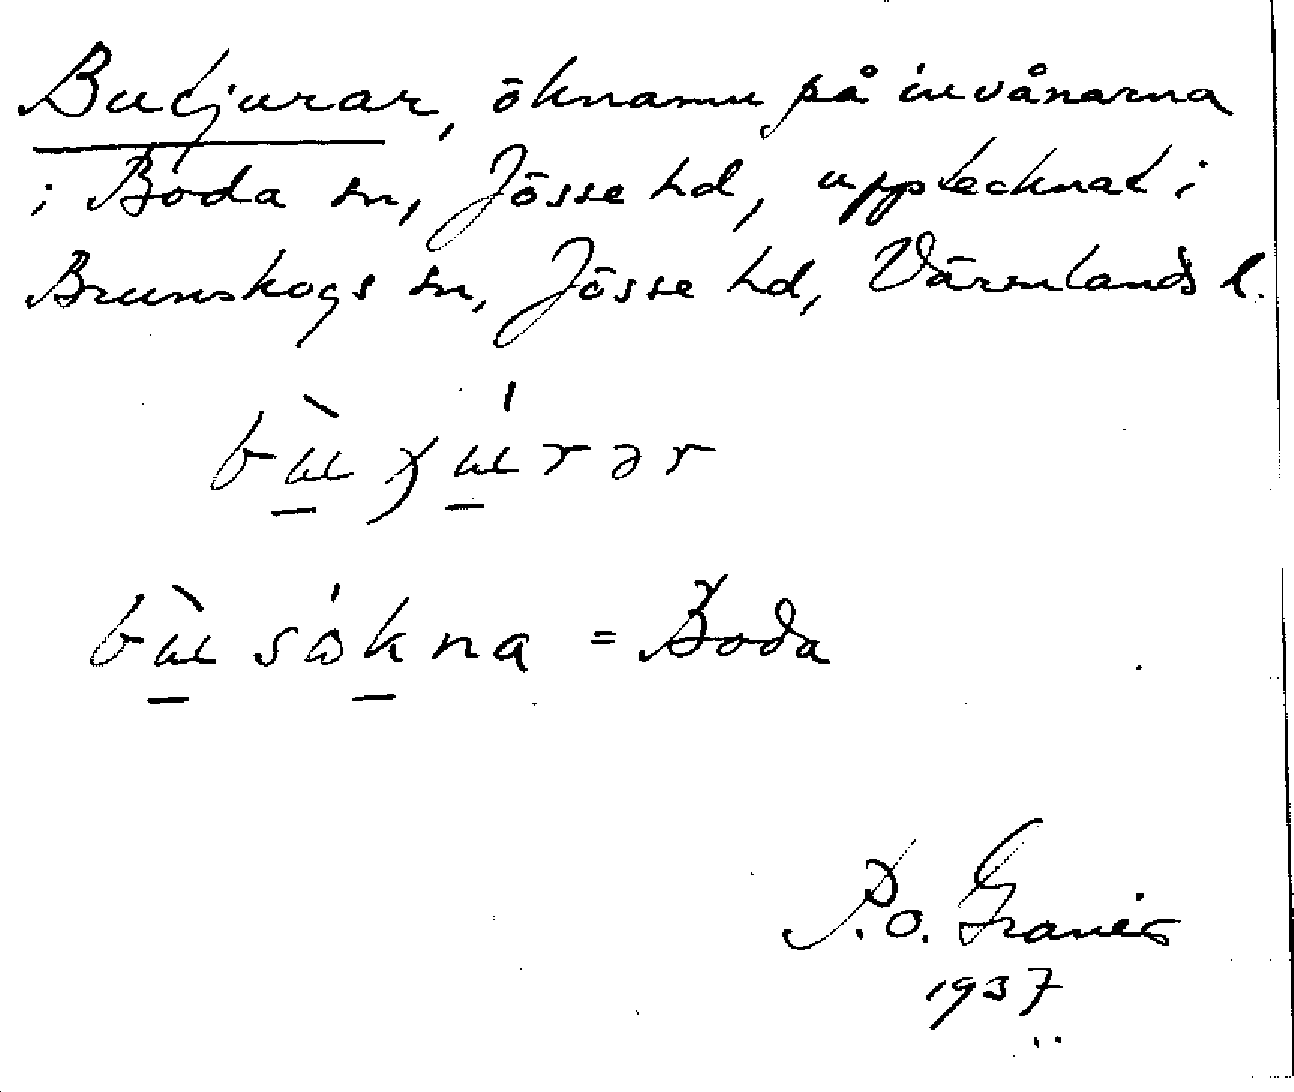 Butjurar, öknamn på invånarna
i Boda sn, Jösse hd, upptecknat i
Brunskogs sn, Jösse hd, Värmlands l.
= Boda
P.O. Granér
1937